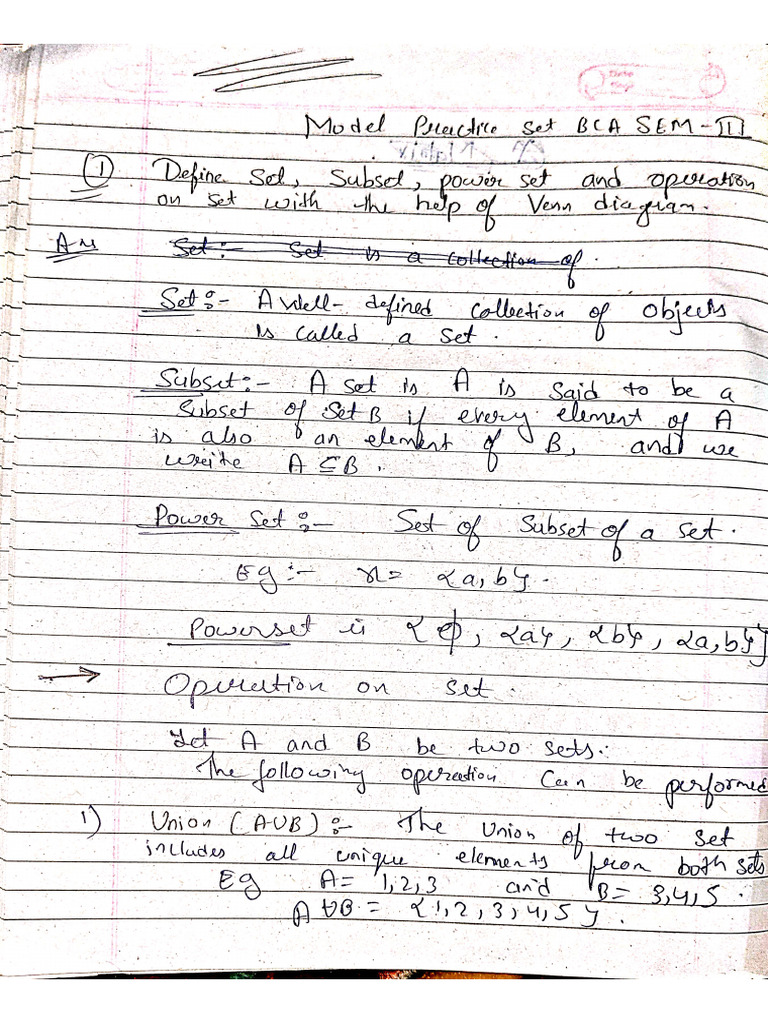 Model Practice Set BCA SEM-III
① Define Set, Subset, power set and operation
on set with the help of Venn diagram.
Ans Set:- Set is a collection of
Set:- A Well-defined collection of objects
is called a set.
Subset:- A set is A is said to be a
Subset of Set B if every element of A
is also an element of B, and we
write A ⊆ B.
Power Set:- Set of Subset of a set.
Eg:- x = {a, b}.
Powerset is { ϕ, {a}, {b}, {a, b}}
→ Operation on set.
Let A and B be two sets.
The following operation can be performed
1) Union (A∪B):- The Union of two set
includes all unique elements from both sets
Eg A = 1, 2, 3 and B = 3, 4, 5.
A ∪ B = { 1, 2, 3, 4, 5 }.